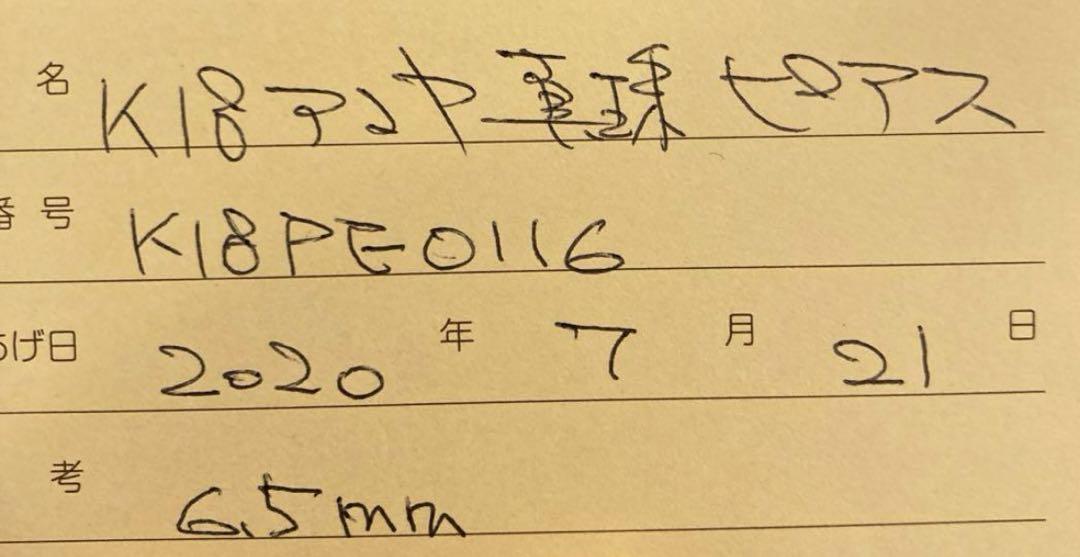 名 K18アコヤ真珠ピアス
番号 K18PE0116
あげ日 2020年7月21日
考 6.5mm